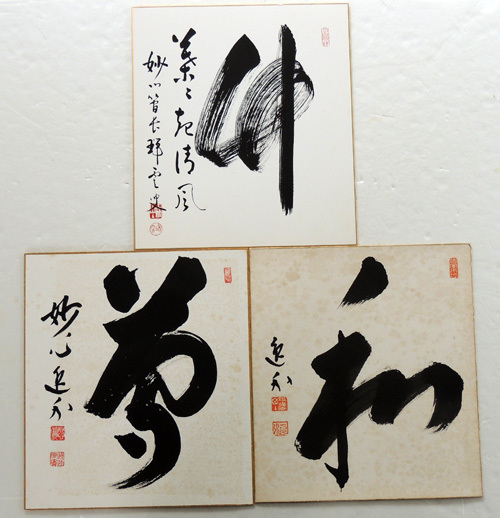 竹
葉々起清風
妙心管長祥雲
夢
妙心逸外
和
逸外